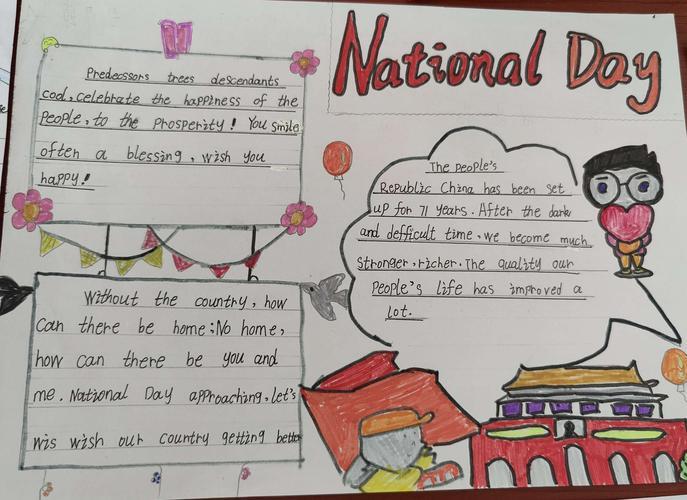 National Day
Predecossors trees descendants
cool, celebrate the happiness of the
People, to the Prosperity! You smile
often a blessing, wish you
happy!
Without the country, how
can there be home; No home,
how can there be you and
me. National Day approaching, let's
wis wish our country getting better
The People's
Republic China has been set
up for 71 years. After the dark
and defficult time, we become much
stronger, richer. The quality our
People's life has improved a
lot.